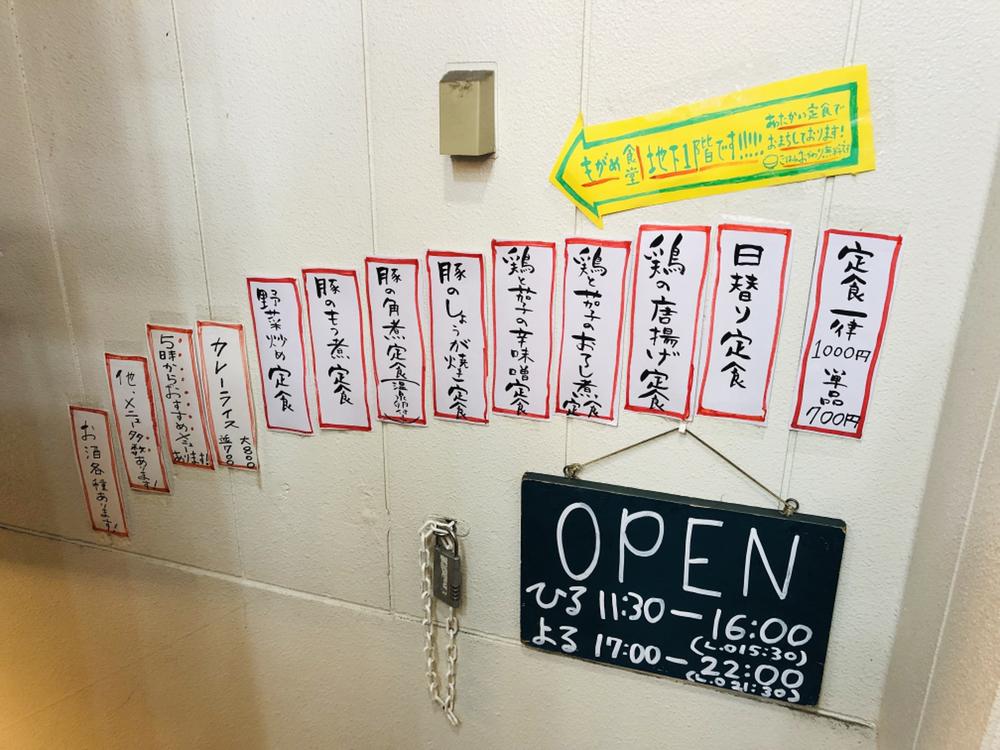 もがめ食堂
地下1階です!!!!!
あったかい定食で
おまちしております!
ごはんおかわりあります
定食一律
1000円
単品
700円
日替り定食
鶏の唐揚げ定食
鶏と茄子のおろし煮定食
鶏と茄子の辛味噌定食
豚のしょうが焼き定食
豚の角煮定食(温泉卵付)
豚のもつ煮定食
野菜炒め定食
カレーライス
大800
並700
5時からおすすめメニューあります!
他メニュー多数あります!
お酒各種あります!
OPEN
ひる 11:30ー16:00
(L.O15:30)
よる 17:00ー22:00
(L.O21:30)